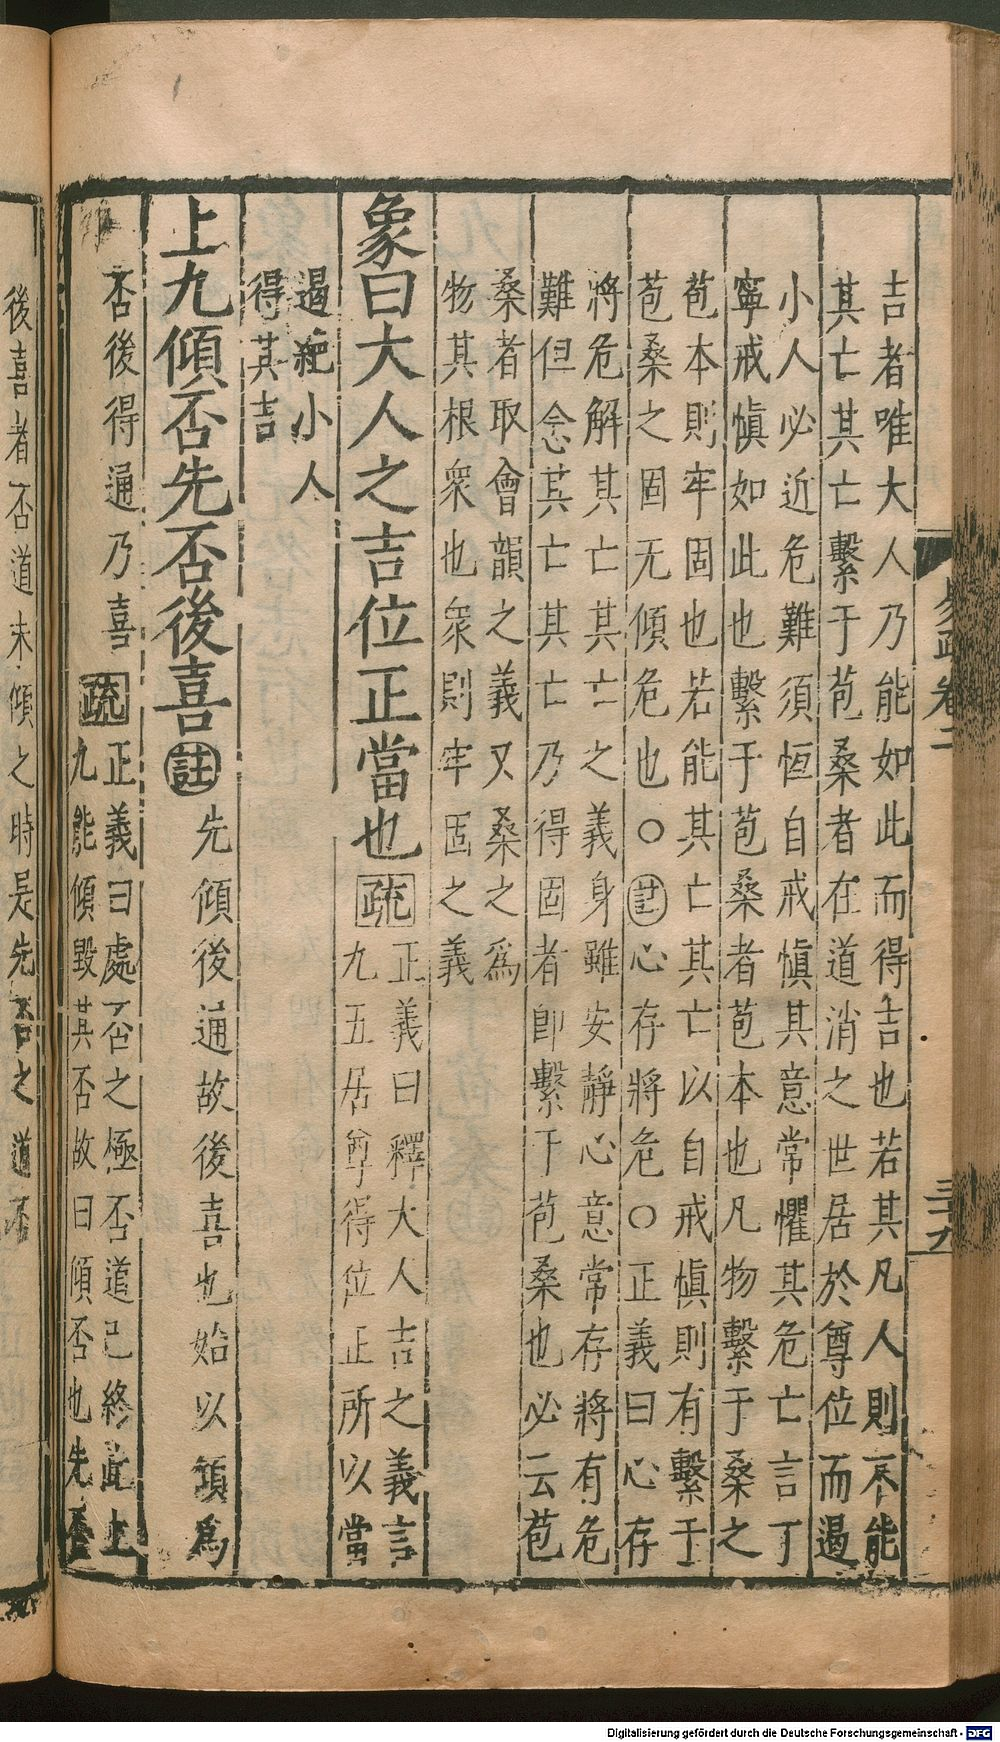 易疏卷二
三十九
吉者唯大人乃能如此而得吉也若其凡人則不能
其亡其亡繫于苞桑者在道消之世居於尊位而遏
小人必近危難須恆自戒慎其意常懼其危亡言丁
寧戒慎如此也繫于苞桑者苞本也凡物繫于桑之
苞本則牢固也若能其亡其亡以自戒慎則有繫于
苞桑之固无傾危也○註心存將危○正義曰心存
將危解其亡其亡之義身雖安靜心意常存將有危
難但念其亡其亡乃得固者即繫于苞桑也必云苞
桑者取會韻之義又桑之為
物其根衆也衆則牢固之義
象曰大人之吉位正當也疏正義曰釋大人吉之義言
九五居尊得位正所以當
遏絕小人
得其吉
上九傾否先否後喜註先傾後通故後喜也始以傾為
否後得通乃喜疏正義曰處否之極否道已終此上
九能傾毀其否故曰傾否也先否
後喜者否道未傾之時是先否之道否
Digitalisierung gefördert durch die Deutsche Forschungsgemeinschaft - DFG